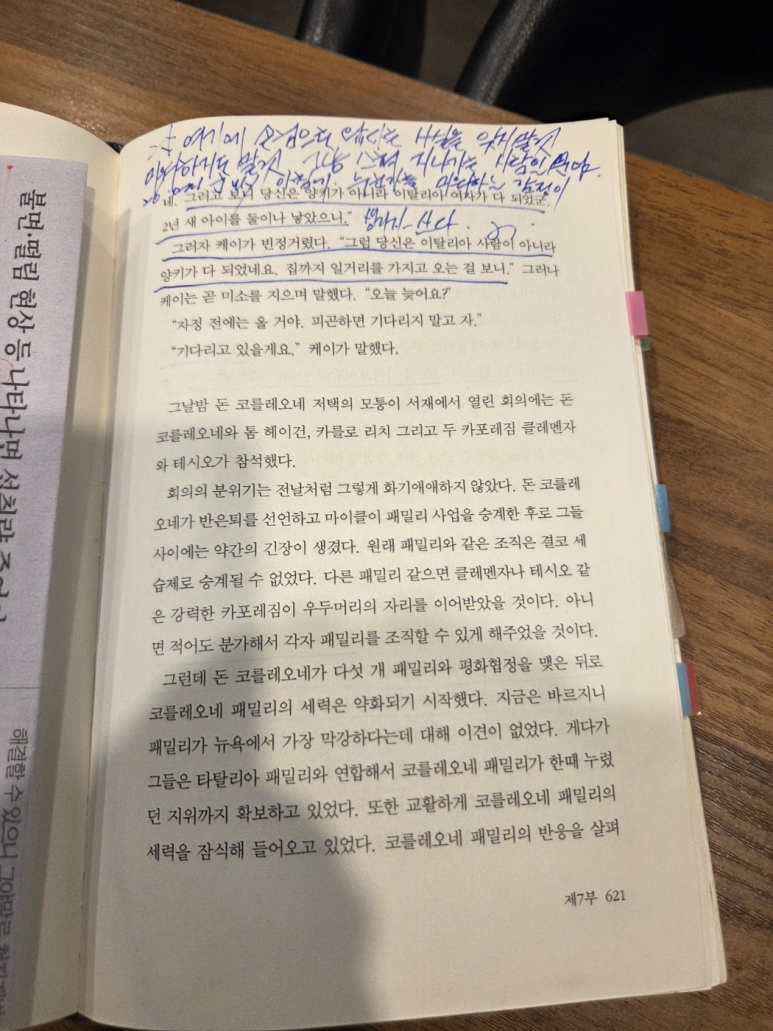 불면·떨림 현상 등 나타나면
해결할 수 있으니 그야말로
※ 여기에 손님으로 사실을 잊지말것
말것 그냥 스쳐 지나가는 사람일
미워하는 감정이
네. 그러고 보니 당신은 양키가 아니라 이탈리아 여자가 다 되었군.
2년 새 아이를 둘이나 낳았으니."
그러자 케이가 빈정거렸다. "그럼 당신은 이탈리아 사람이 아니라
양키가 다 되었네요. 집까지 일거리를 가지고 오는 걸 보니." 그러나
케이는 곧 미소를 지으며 말했다. "오늘 늦어요?"
"자정 전에는 올 거야. 피곤하면 기다리지 말고 자."
"기다리고 있을게요." 케이가 말했다.
그날밤 돈 코를레오네 저택의 모퉁이 서재에서 열린 회의에는 돈
코를레오네와 톰 헤이건, 카를로 리치 그리고 두 카포레짐 클레멘자
와 테시오가 참석했다.
회의의 분위기는 전날처럼 그렇게 화기애애하지 않았다. 돈 코를레
오네가 반은퇴를 선언하고 마이클이 패밀리 사업을 승계한 후로 그들
사이에는 약간의 긴장이 생겼다. 원래 패밀리와 같은 조직은 결코 세
습제로 승계될 수 없었다. 다른 패밀리 같으면 클레멘자나 테시오 같
은 강력한 카포레짐이 우두머리의 자리를 이어받았을 것이다. 아니
면 적어도 분가해서 각자 패밀리를 조직할 수 있게 해주었을 것이다.
그런데 돈 코를레오네가 다섯 개 패밀리와 평화협정을 맺은 뒤로
코를레오네 패밀리의 세력은 약화되기 시작했다. 지금은 바르지니
패밀리가 뉴욕에서 가장 막강하다는데 대해 이견이 없었다. 게다가
그들은 타탈리아 패밀리와 연합해서 코를레오네 패밀리가 한때 누렸
던 지위까지 확보하고 있었다. 또한 교활하게 코를레오네 패밀리의
세력을 잠식해 들어오고 있었다. 코를레오네 패밀리의 반응을 살펴
제7부 621